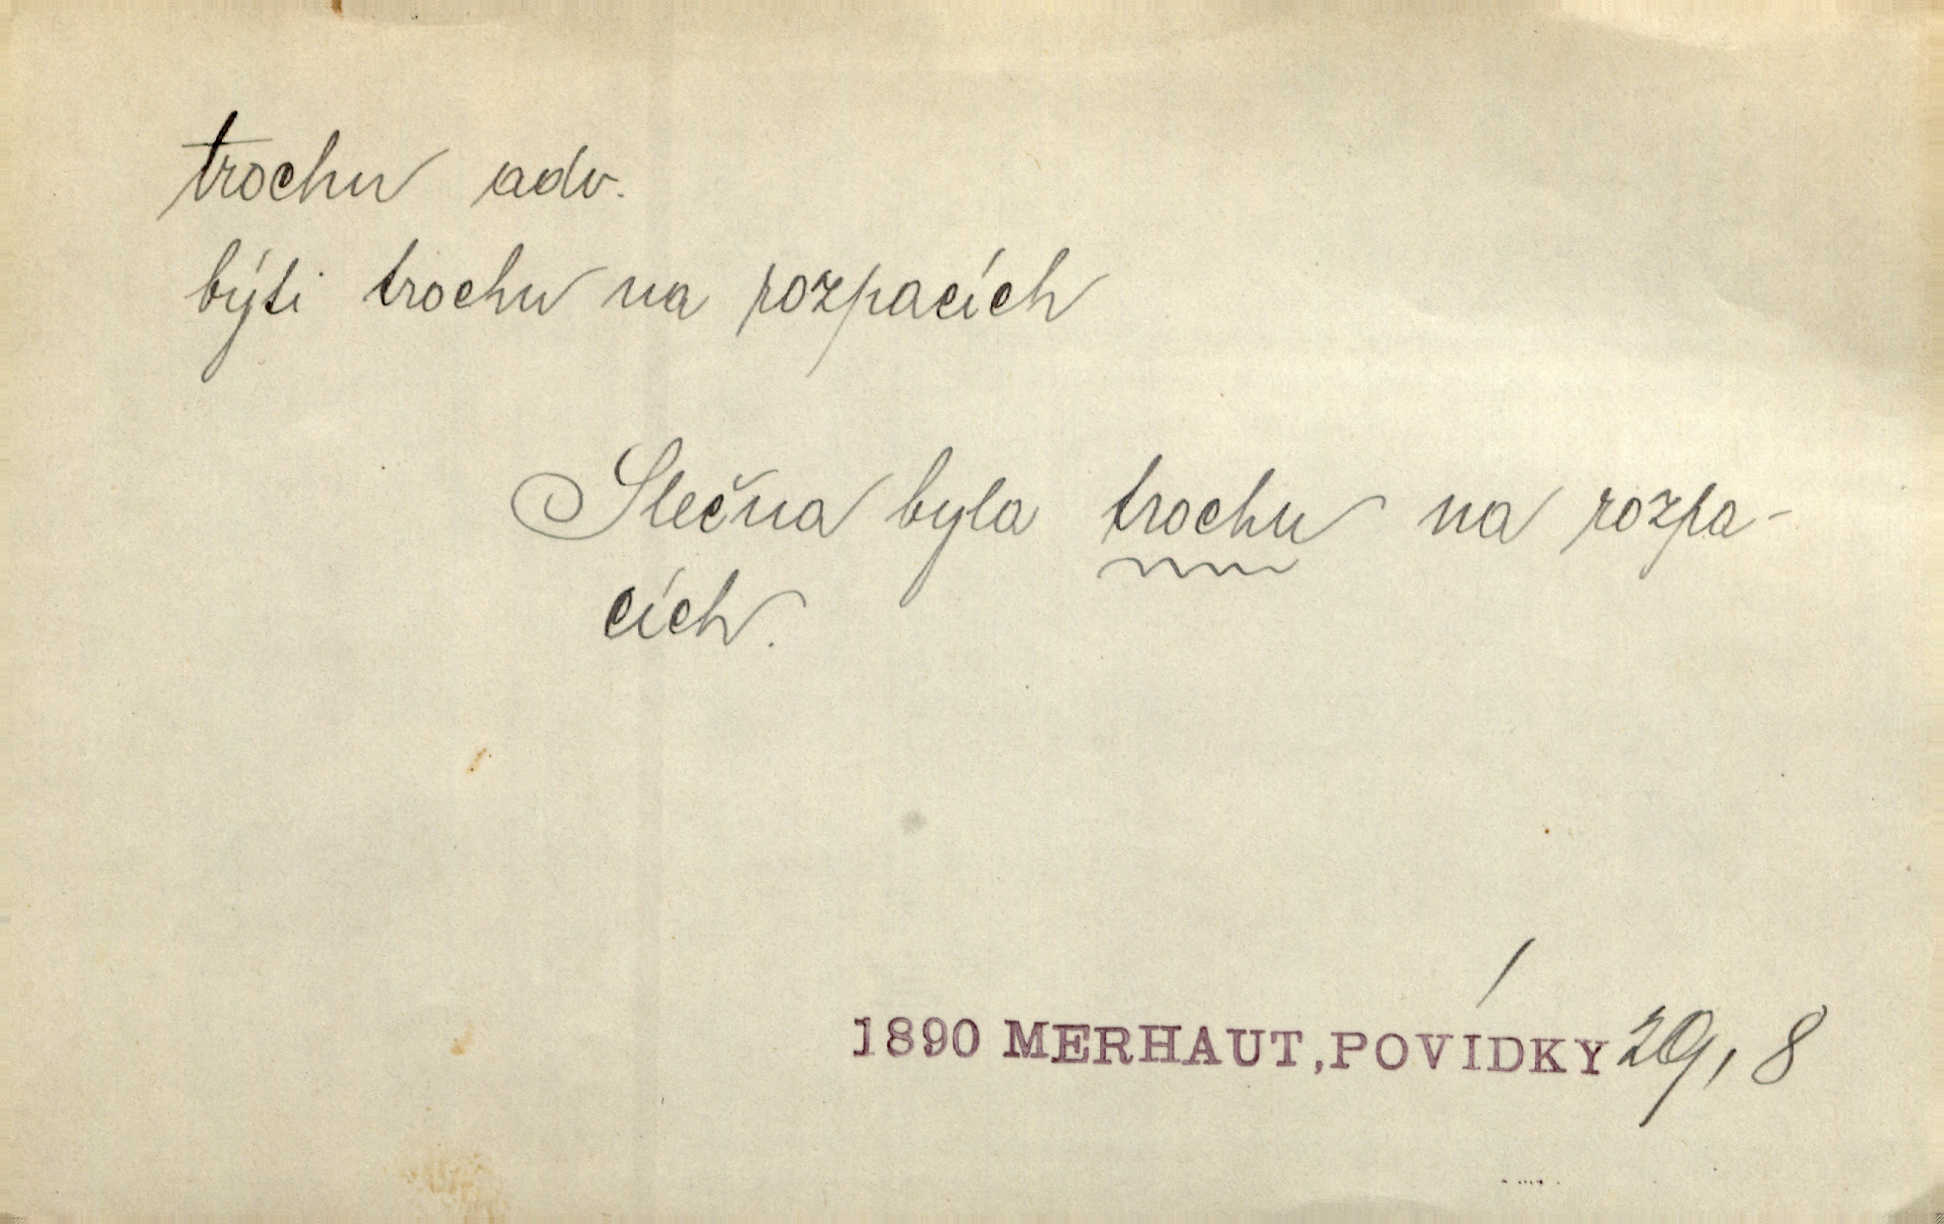 trochu adv.
býti trochu na rozpacích
Slečna byla trochu na rozpa-
cích.
1890 MERHAUT, POVÍDKY 29, 8